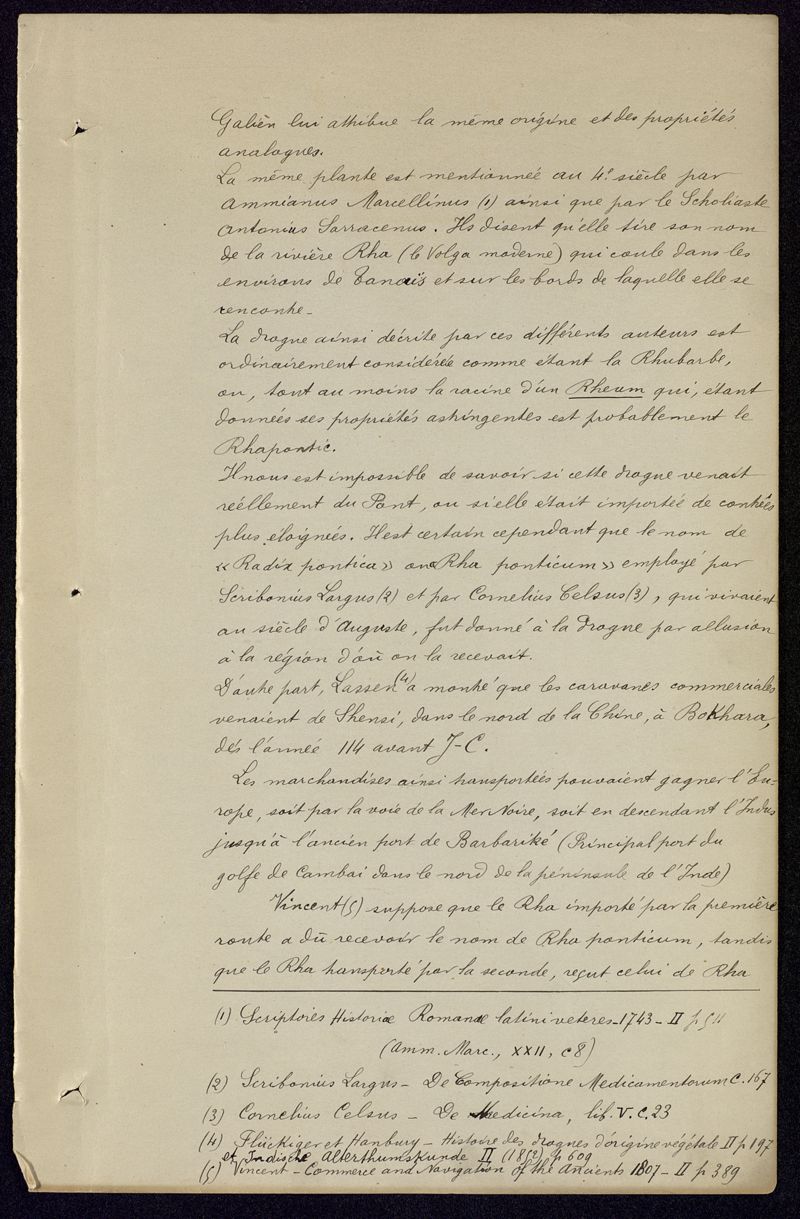 Galien lui attribue la même origine et des propriétés
analogues.
La même plante est mentionnée au 4e siècle par
Ammianus Marcellinus (1) ainsi que par le Scholiaste
Antonius Sarracenus. Ils disent qu'elle tire son nom
de la rivière Rha (le Volga moderne) qui coule dans les
environs de Tanaïs et sur les bords de laquelle elle se
rencontre.
La drogue ainsi décrite par ces différents auteurs est
ordinairement considérée comme étant la Rhubarbe,
ou, tout au moins la racine d'un Rheum qui, étant
données ses propriétés astringentes est probablement le
Rhapontic.
Il nous est impossible de savoir si cette drogue venait
réellement du Pont, ou si elle était importée de contrées
plus éloignées. Il est certain cependant que le nom de
« Radix pontica » ou « Rha ponticum » employé par
Scribonius Largus (2) et par Cornelius Celsus (3), qui vivaient
au siècle d'Auguste, fut donné à la drogue par allusion
à la région d'où on la recevait.
D'autre part, Lassen (4) a montré que les caravanes commerciales
venaient de Shensi, dans le nord de la Chine, à Bokhara,
dès l'année 114 avant J-C.
Les marchandises ainsi transportées pouvaient gagner l'Eu-
rope, soit par la voie de la Mer Noire, soit en descendant l'Indus
jusqu'à l'ancien port de Barbariké (Principal port du
golfe de Cambai dans le nord de la péninsule de l'Inde)
Vincent (5) suppose que le Rha importé par la première
route a dû recevoir le nom de Rha ponticum, tandis
que le Rha transporté par la seconde, reçut celui de Rha
(1) Scriptores Historiæ Romanæ latini veteres – 1743 – II p 511
(Amm. Marc., XXII, c 8)
(2) Scribonius Largus – De Compositione Medicamentorum C. 167
(3) Cornelius Celsus – De Medicina, lib. V. C. 23
(4) Flückiger et Hanbury – Histoire des drogues d'origine végétale II p 197
et Indische Alterthumskunde II (1852) p 609
(5) Vincent – Commerce and Navigation of the Ancients 1807 – II p 389